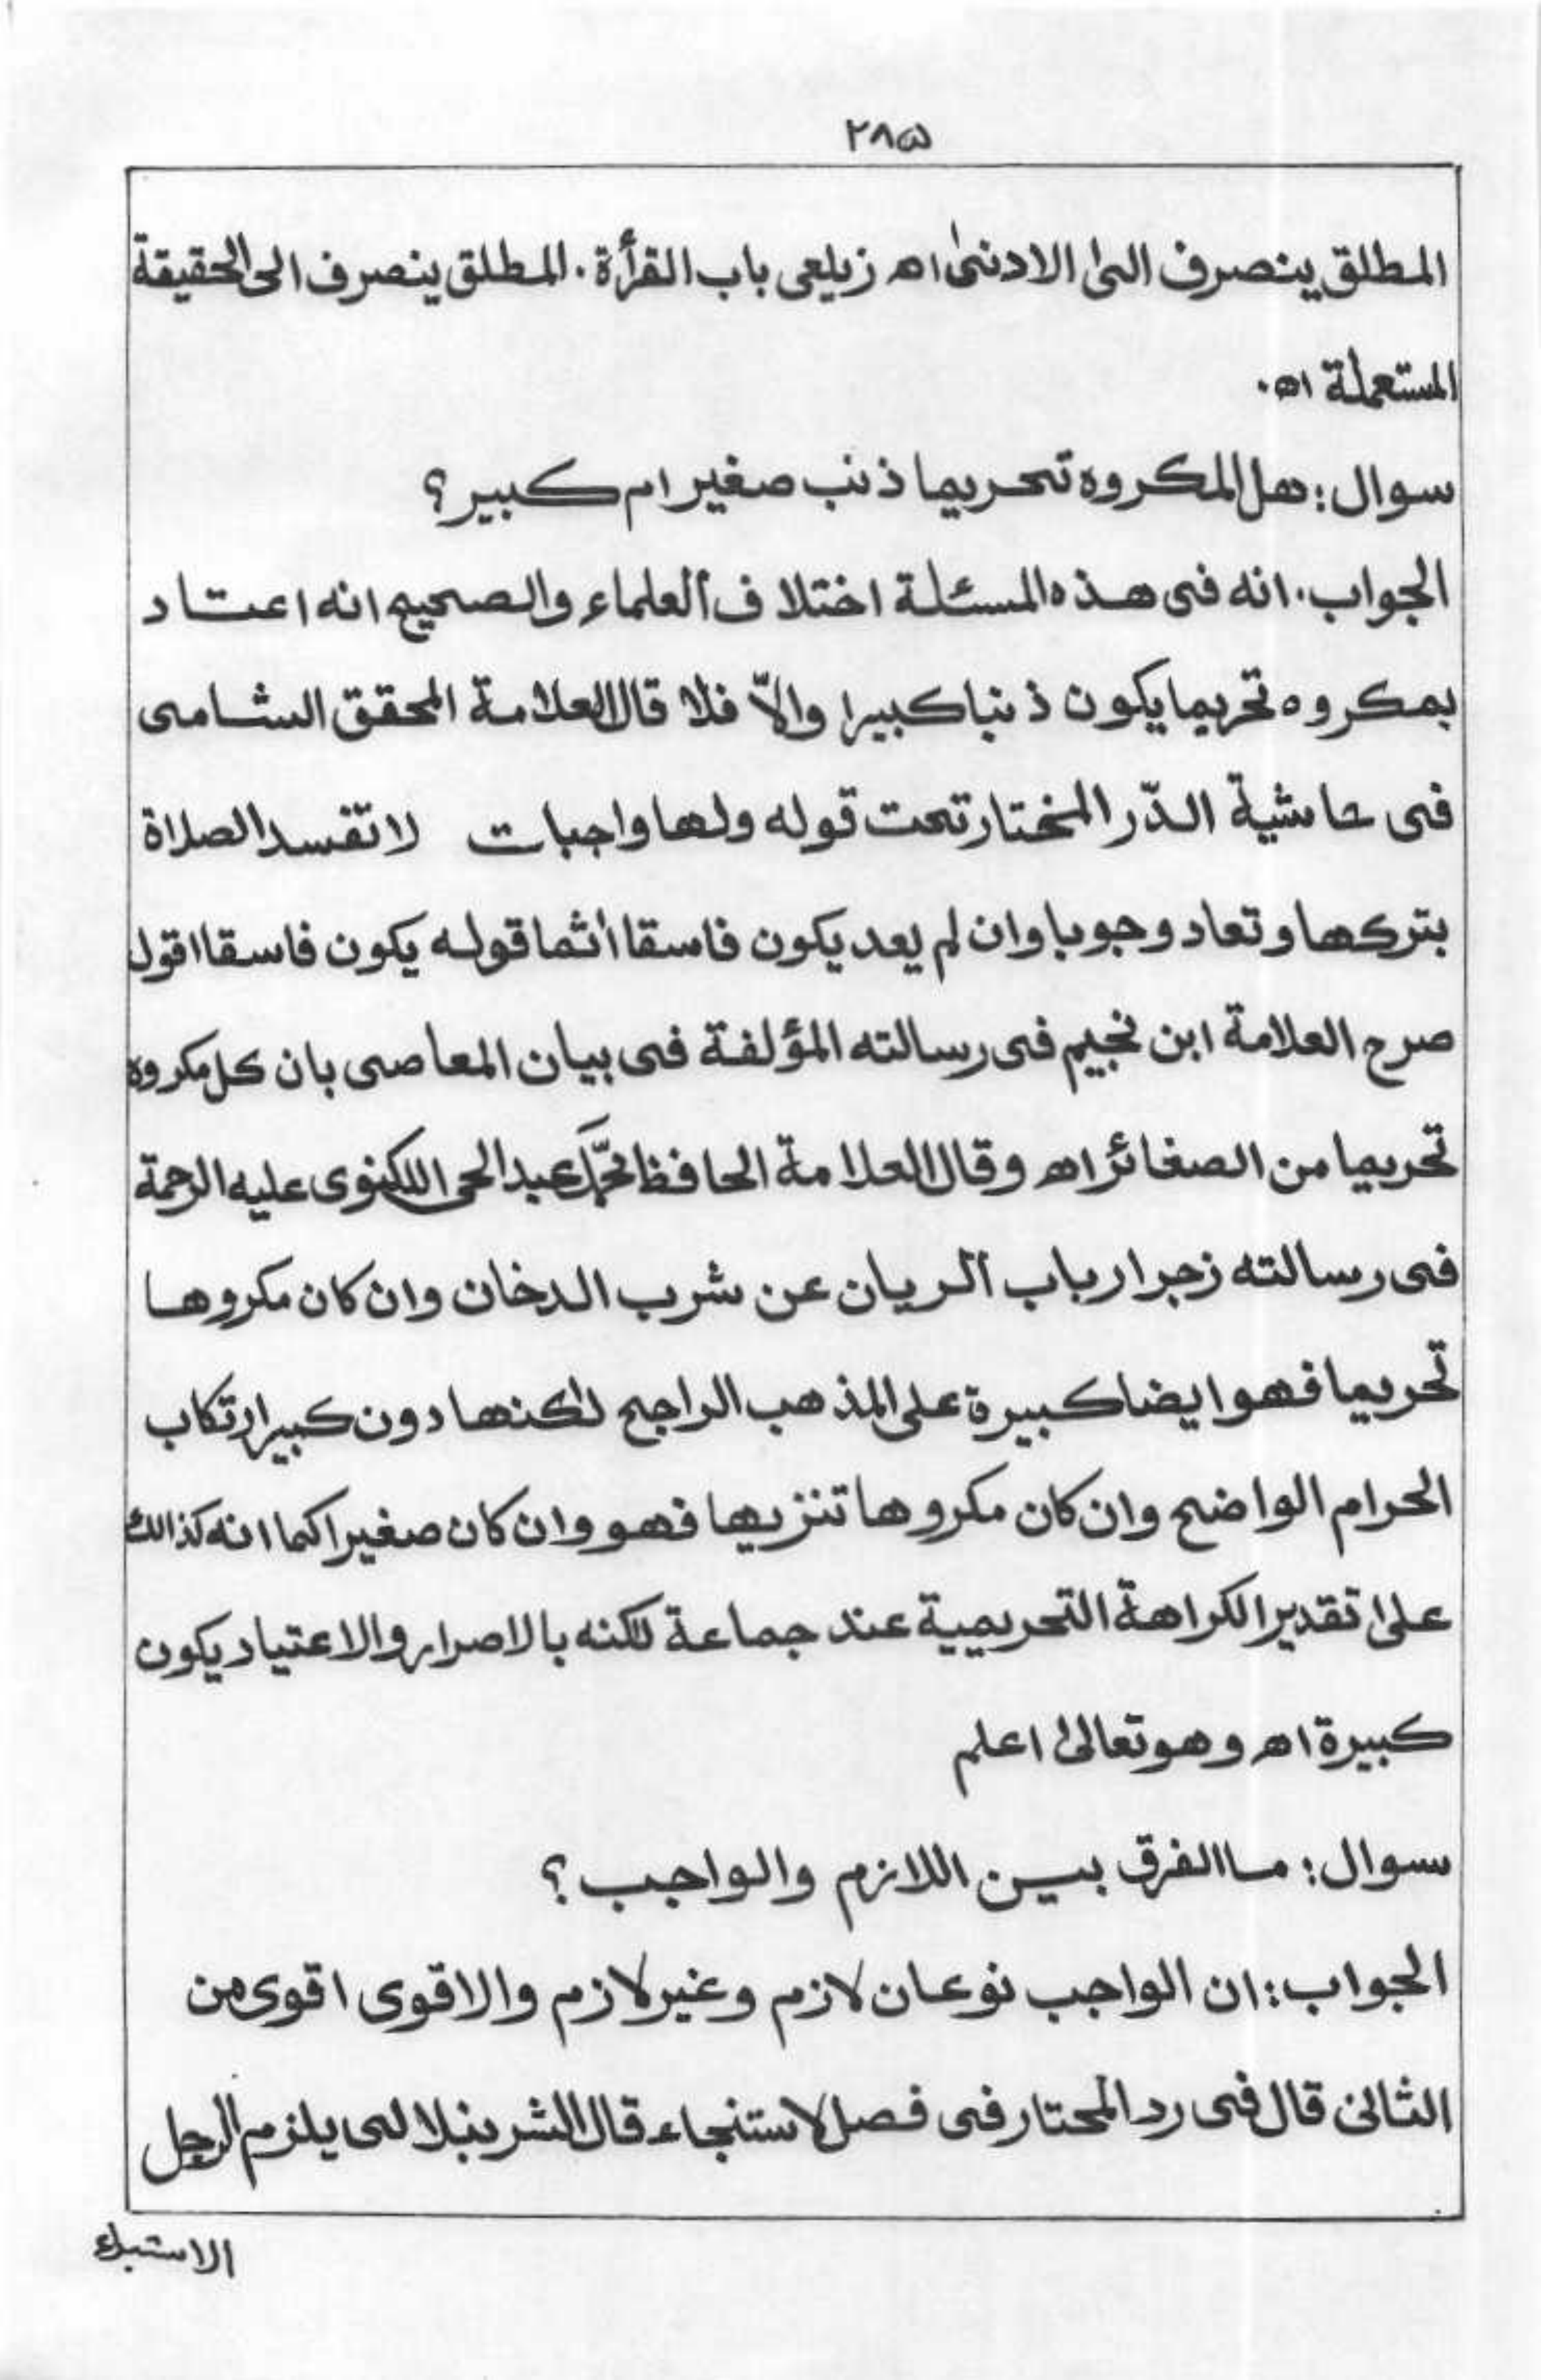 ٢٨٥
المطلق ينصرف الىٰ الادنىٰ اھ زيلعى باب القرأة ۔ المطلق ينصرف الى الحقيقة
المستعملة اھ ۔
سوال : هل المكروه تحريما ذنب صغير ام كبير ؟
الجواب ۔ انه فى هذه المسئلة اختلاف العلماء والصحيح انه اعتاد
بمكروه تحريما يكون ذنبا كبيرا والّا فلا قال العلامة المحقق الشامى
فى حاشية الدّر المختار تحت قوله ولها واجبات لا تفسد الصلاة
بتركها وتعاد وجوبا وان لم يعد يكون فاسقا أثما قوله يكون فاسقا اقول
صرح العلامة ابن نجيم فى رسالته المؤلفة فى بيان المعاصى بان كل مكروه
تحريما من الصغائر اھ وقال العلامة الحافظ محمّد عبد الحى اللكنوى عليه الرحمة
فى رسالته زجر ارباب الريان عن شرب الدخان وان كان مكروها
تحريما فهو ايضا كبيرة على المذهب الراجح لٰكنها دون كبير ارتكاب
الحرام الواضح وان كان مكروها تنزيها فهو وان كان صغيرا كما انه كذالك
علىٰ تقدير الكراهة التحريمية عند جماعة لكنه بالاصرار والاعتياد يكون
كبيرة اھ وهو تعالىٰ اعلم
سوال : ما الفرق بين اللازم والواجب ؟
الجواب : ان الواجب نوعان لازم وغير لازم والاقوى اقوى من
الثانى قال فى رد المحتار فى فصل لاستنجاء قال الشرينبلالى يلزم الرجل
الاستبراء